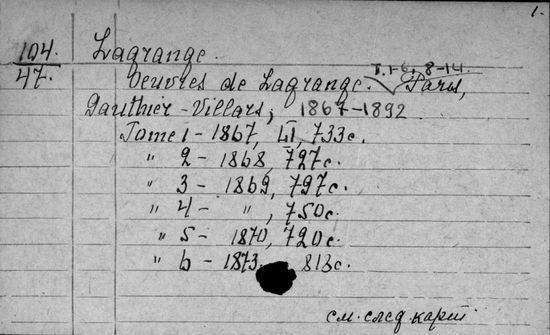 1.
104. Lagrange.
47. Oeuvres de Lagrange. T. 1-6, 8-14. Paris,
Gauthier-Villars, 1867-1892
Tome 1 - 1867, LI, 733c.
" 2 - 1868, 727c.
" 3 - 1869, 797c.
" 4 - ", 750c.
" 5 - 1870, 720c.
" 6 - 1873. 813c.
см. след. карт